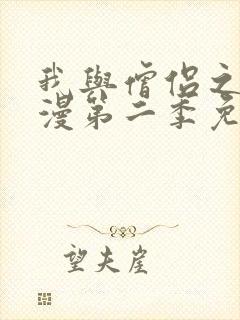 我與僧侶之
漫第二季免
望夫崖